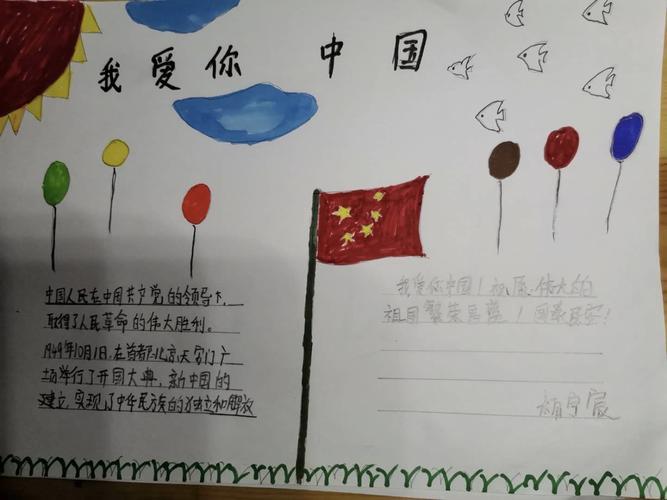 我爱你 中国
中国人民在中国共产党的领导下,
取得了人民革命的伟大胜利。
1949年10月1日,在首都北京天安门广
场举行了开国大典,新中国的
建立,实现了中华民族的独立和解放
我爱你中国!祝愿伟大的
祖国繁荣昌盛!国泰民安!